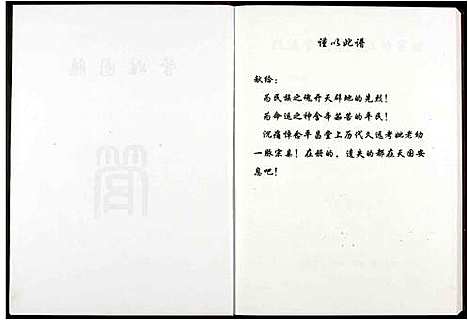 谨以此谱
献给：
为民族之魂开天辟地的先烈！
为命运之神含辛茹苦的平民！
沉痛悼念平昌堂上历代久远考妣老幼
一脉宗亲！在册的，遗失的都在天国安
息吧！